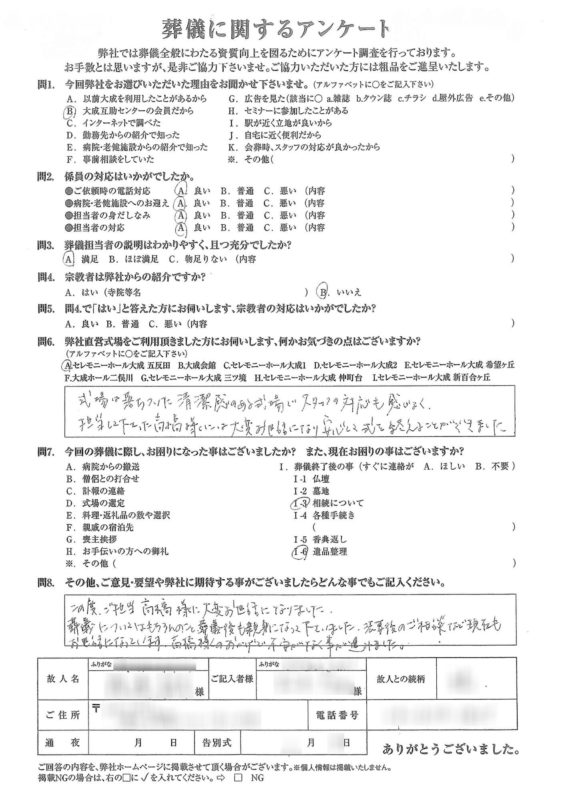 葬儀に関するアンケート
弊社では葬儀全般にわたる資質向上を図るためにアンケート調査を行っております。
お手数とは思いますが、是非ご協力下さいませ。ご協力いただいた方には粗品をご進呈いたします。
問1. 今回弊社をお選びいただいた理由をお聞かせ下さいませ。(アルファベットに○をご記入下さい)
A. 以前大成を利用したことがあるから G. 広告を見た(該当に○ a.雑誌 b.タウン誌 c.チラシ d.屋外広告 e.その他)
B. 大成互助センターの会員だから H. セミナーに参加したことがある
C. インターネットで調べた I. 駅が近く立地が良いから
D. 勤務先からの紹介で知った J. 自宅に近く便利だから
E. 病院・老健施設からの紹介で知った K. 会葬時、スタッフの対応が良かったから
F. 事前相談をしていた ※. その他( )
問2. 係員の対応はいかがでしたか。
●ご依頼時の電話対応 A. 良い B. 普通 C. 悪い (内容 )
●病院・老健施設へのお迎え A. 良い B. 普通 C. 悪い (内容 )
●担当者の身だしなみ A. 良い B. 普通 C. 悪い (内容 )
●担当者の対応 A. 良い B. 普通 C. 悪い (内容 )
問3. 葬儀担当者の説明はわかりやすく、且つ充分でしたか?
A. 満足 B. ほぼ満足 C. 物足りない (内容 )
問4. 宗教者は弊社からの紹介ですか?
A. はい (寺院等名 ) B. いいえ
問5. 問4.で「はい」と答えた方にお伺いします、宗教者の対応はいかがでしたか?
A. 良い B. 普通 C. 悪い (内容 )
問6. 弊社直営式場をご利用頂きました方にお伺いします、何かお気づきの点はございますか?
(アルファベットに○をご記入下さい)
A.セレモニーホール大成 五反田 B.大成会館 C.セレモニーホール大成1 D.セレモニーホール大成2 E.セレモニーホール大成 希望ヶ丘
F.大成ホール二俣川 G.セレモニーホール大成 三ツ境 H.セレモニーホール大成 仲町台 I.セレモニーホール大成 新百合ヶ丘
式場は落ちついた清潔感のある式場でスタッフの対応も感じよく、
担当して下さった高橋様には大変お世話になり安心して式を終えることができました
問7. 今回の葬儀に際し、お困りになった事はございましたか? また、現在お困りの事はございますか?
A. 病院からの搬送 I. 葬儀終了後の事 (すぐに連絡が A. ほしい B. 不要)
B. 僧侶との打合せ I-1 仏壇
C. 訃報の連絡 I-2 墓地
D. 式場の選定 I-3 相続について
E. 料理・返礼品の数や選択 I-4 各種手続き
F. 親戚の宿泊先 ( )
G. 喪主挨拶 I-5 香典返し
H. お手伝いの方への御礼 I-6 遺品整理
※. その他 ( )
問8. その他、ご意見・要望や弊社に期待する事がございましたらどんな事でもご記入ください。
この度、ご担当 高橋様に大変お世話になりました。
葬儀についてはもちろんのこと葬儀後も親身になって下さいました。法事後のご相談など現在も
お世話になっています。高橋様のおかげで不安がなく事が進みました。
故人名 ふりがな 様 ご記入者様 ふりがな 様 故人との続柄
ご住所 〒 電話番号
通夜 月 日 告別式 月 日 ありがとうございました。
ご回答の内容を、弊社ホームページに掲載させて頂く場合がございます。※個人情報は掲載いたしません。
掲載NGの場合は、右の□に✓を入れてください。⇨ □ NG